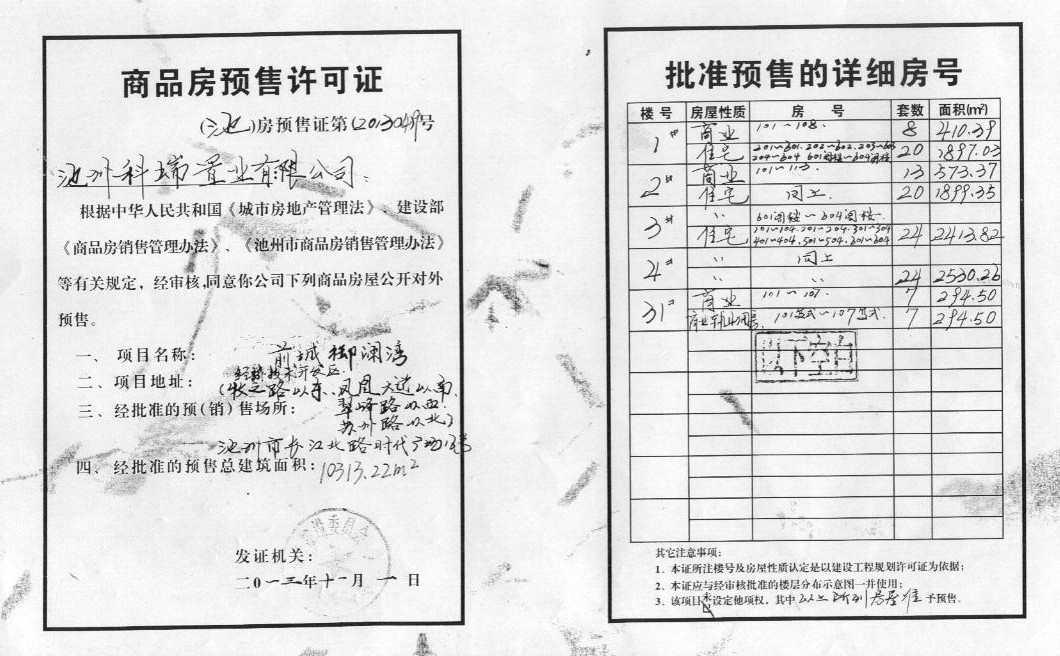 商品房预售许可证
(池)房预售证第(2013049号
池州科瑞置业有限公司:
根据中华人民共和国《城市房地产管理法》、建设部
《商品房销售管理办法》、《池州市商品房销售管理办法》
等有关规定,经审核,同意你公司下列商品房屋公开对外
预售。
一、项目名称: 前城御澜湾
经济技术开发区
二、项目地址: (牧之路以东、凤凰大道以南,
三、经批准的预(销)售场所: 翠峰路以西
苏州路以北)
池州市长江北路时代广场13号
四、经批准的预售总建筑面积: 10313.22m²
发证机关:
二〇一三年十一月一日
批准预售的详细房号
楼号 房屋性质 房号 套数 面积(m²)
1# 商业 101~108. 8 410.39
住宅 201~601.202~602.203~603 20 1897.03
204~604 601阁楼~604阁楼
2# 商业 101~113. 13 573.37
住宅 同上 20 1899.35
3# 〃 601阁楼~604阁楼
住宅 101~104.201~204.301~304 24 2413.82
401~404.501~504.601~604
4# 〃 同上
〃 〃 24 2530.26
31# 商业 101~107. 7 294.50
7 294.50
其它注意事项:
1.本证所注楼号及房屋性质认定是以建设工程规划许可证为依据;
2.本证应与经审核批准的楼层分布示意图一并使用;
3.该项目未设定他项权,其中以上所列房屋准予预售。